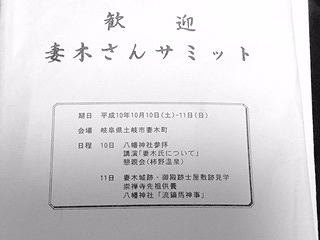 歓　迎
妻木さんサミット
期日　平成10年10月10日(土)-11日(日)
会場　岐阜県土岐市妻木町
日程　10日　八幡神社参拝
講演「妻木氏について」
懇親会(柿野温泉)
11日　妻木城跡・御殿跡士屋敷跡見学
崇禅寺先祖供養
八幡神社「流鏑馬神事」